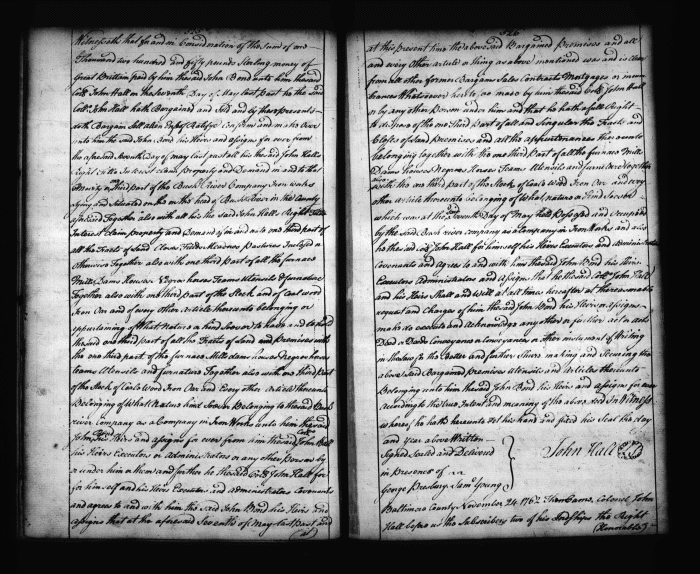 Witnesseth that for and in Consideration of the Sum of one
Thousand two hundred and fifty pounds Sterling money of
Great Brittan paid by him the said John Bond unto him the said
Coll. John Hall on the Seventh Day of May last past he the said
Coll. John Hall hath Bargained and Sold and by these presents
doth Bargain Sell alien Ratifie Confirm and make Over
unto him the said John Bond his Heirs and assigns for ever from
the aforesaid Seventh Day of May last past all his the said John Halls
Right Title Interest claim Property and Demand in and to the
one third Part of the Bush River Company Iron works
lying and Situated on the head of Bush River in the County
aforesaid Together also with all his the said John Halls Right Title
Interest claim property and Demand of in and to one third part of
all the Tracts of Land Closes Fields Meadows Pastures Inclosed or
Otherwise Together also with one third Part of all the furnace
Mills Dams Houses Negroes horses Teams Utensils & furniture
Together also with one third part of the Stock and of Coal wood
Iron Oar and of every other Article thereunto belonging or
appurtaining of What Nature or kind Soever to have and to hold
the said one third part of all the Tracts of Land and Premises with
the one third part of the furnace Mills dams houses Negroes horses
teams Utensils and furniture Together also with one third part
of the Stock of Coals Wood Iron Oar and Every other Article thereunto
Belonging of What Nature kind Soever Belonging to the said Bush
river company as a Company in Iron Works unto him the said
John Bond his Heirs and assigns for ever from him the said Coll. John Hall
his Heirs Executors or Administrators or any other Person by
or under him or them and further he the said Coll. John Hall for
for himself and his Heirs Executors and administrators Covenants
and agrees to and with him the said John Bond his Heirs and
assigns that at the aforesaid Seventh of May last Past and
526
at this present time the above said Bargained Premises and all
and every Other article or thing as above mentioned was and is clear
from all other former Bargains Sales Contracts Mortgages or incum
brances Whatsoever heretofore made by him the said Coll. John Hall
or by any other Person under him and that he hath a full Right
to dispose of the one Third Part of all and Singular the Tracts and
Closes of Land Premises and all the appurtenances thereunto
belonging together with the one third Part of all the furnace Mills
Dams Houses Negroes Horses Teams Utensils and furniture together
also with the one third part of the Stock of Coals Wood Iron Oar and every
other article thereunto belonging of What nature or kind Soever
which was at the said Seventh Day of May last Possessed and Occupied
by the said Bush river company as a Company in Iron Works and also
he the said Coll. John Hall for himself his Heirs Executors and Administrators
Covenants and Agrees to and with him the said John Bond his Heirs
Executors Administrators and Assigns that he the said Coll. John Hall
and his Heirs Shall and Will at all times hereafter at the reasonable
request and Charges of him the said John Bond his Heirs or assigns
make execute and Acknowledge any other or further act or acts
Deed or Deeds conveyance or conveyances or other instrument of Writing
in the Law for the Better and further Sure making and Securing the
above said Bargained premises Utensils and articles thereunto
Belonging unto him the said John Bond his Heirs and assigns for ever
according to the true Intent and meaning of the above said In Witness
whereof he hath hereunto Set his hand and fixed his Seal the day
and year above Written
Signed Sealed and Delivered
in presence of
George Presbury Saml. Young
John Hall
Baltimore County November 24 1762 Then Came Colonel John
Hall before us the Subscribers two of his Lordships the Right
Honorable